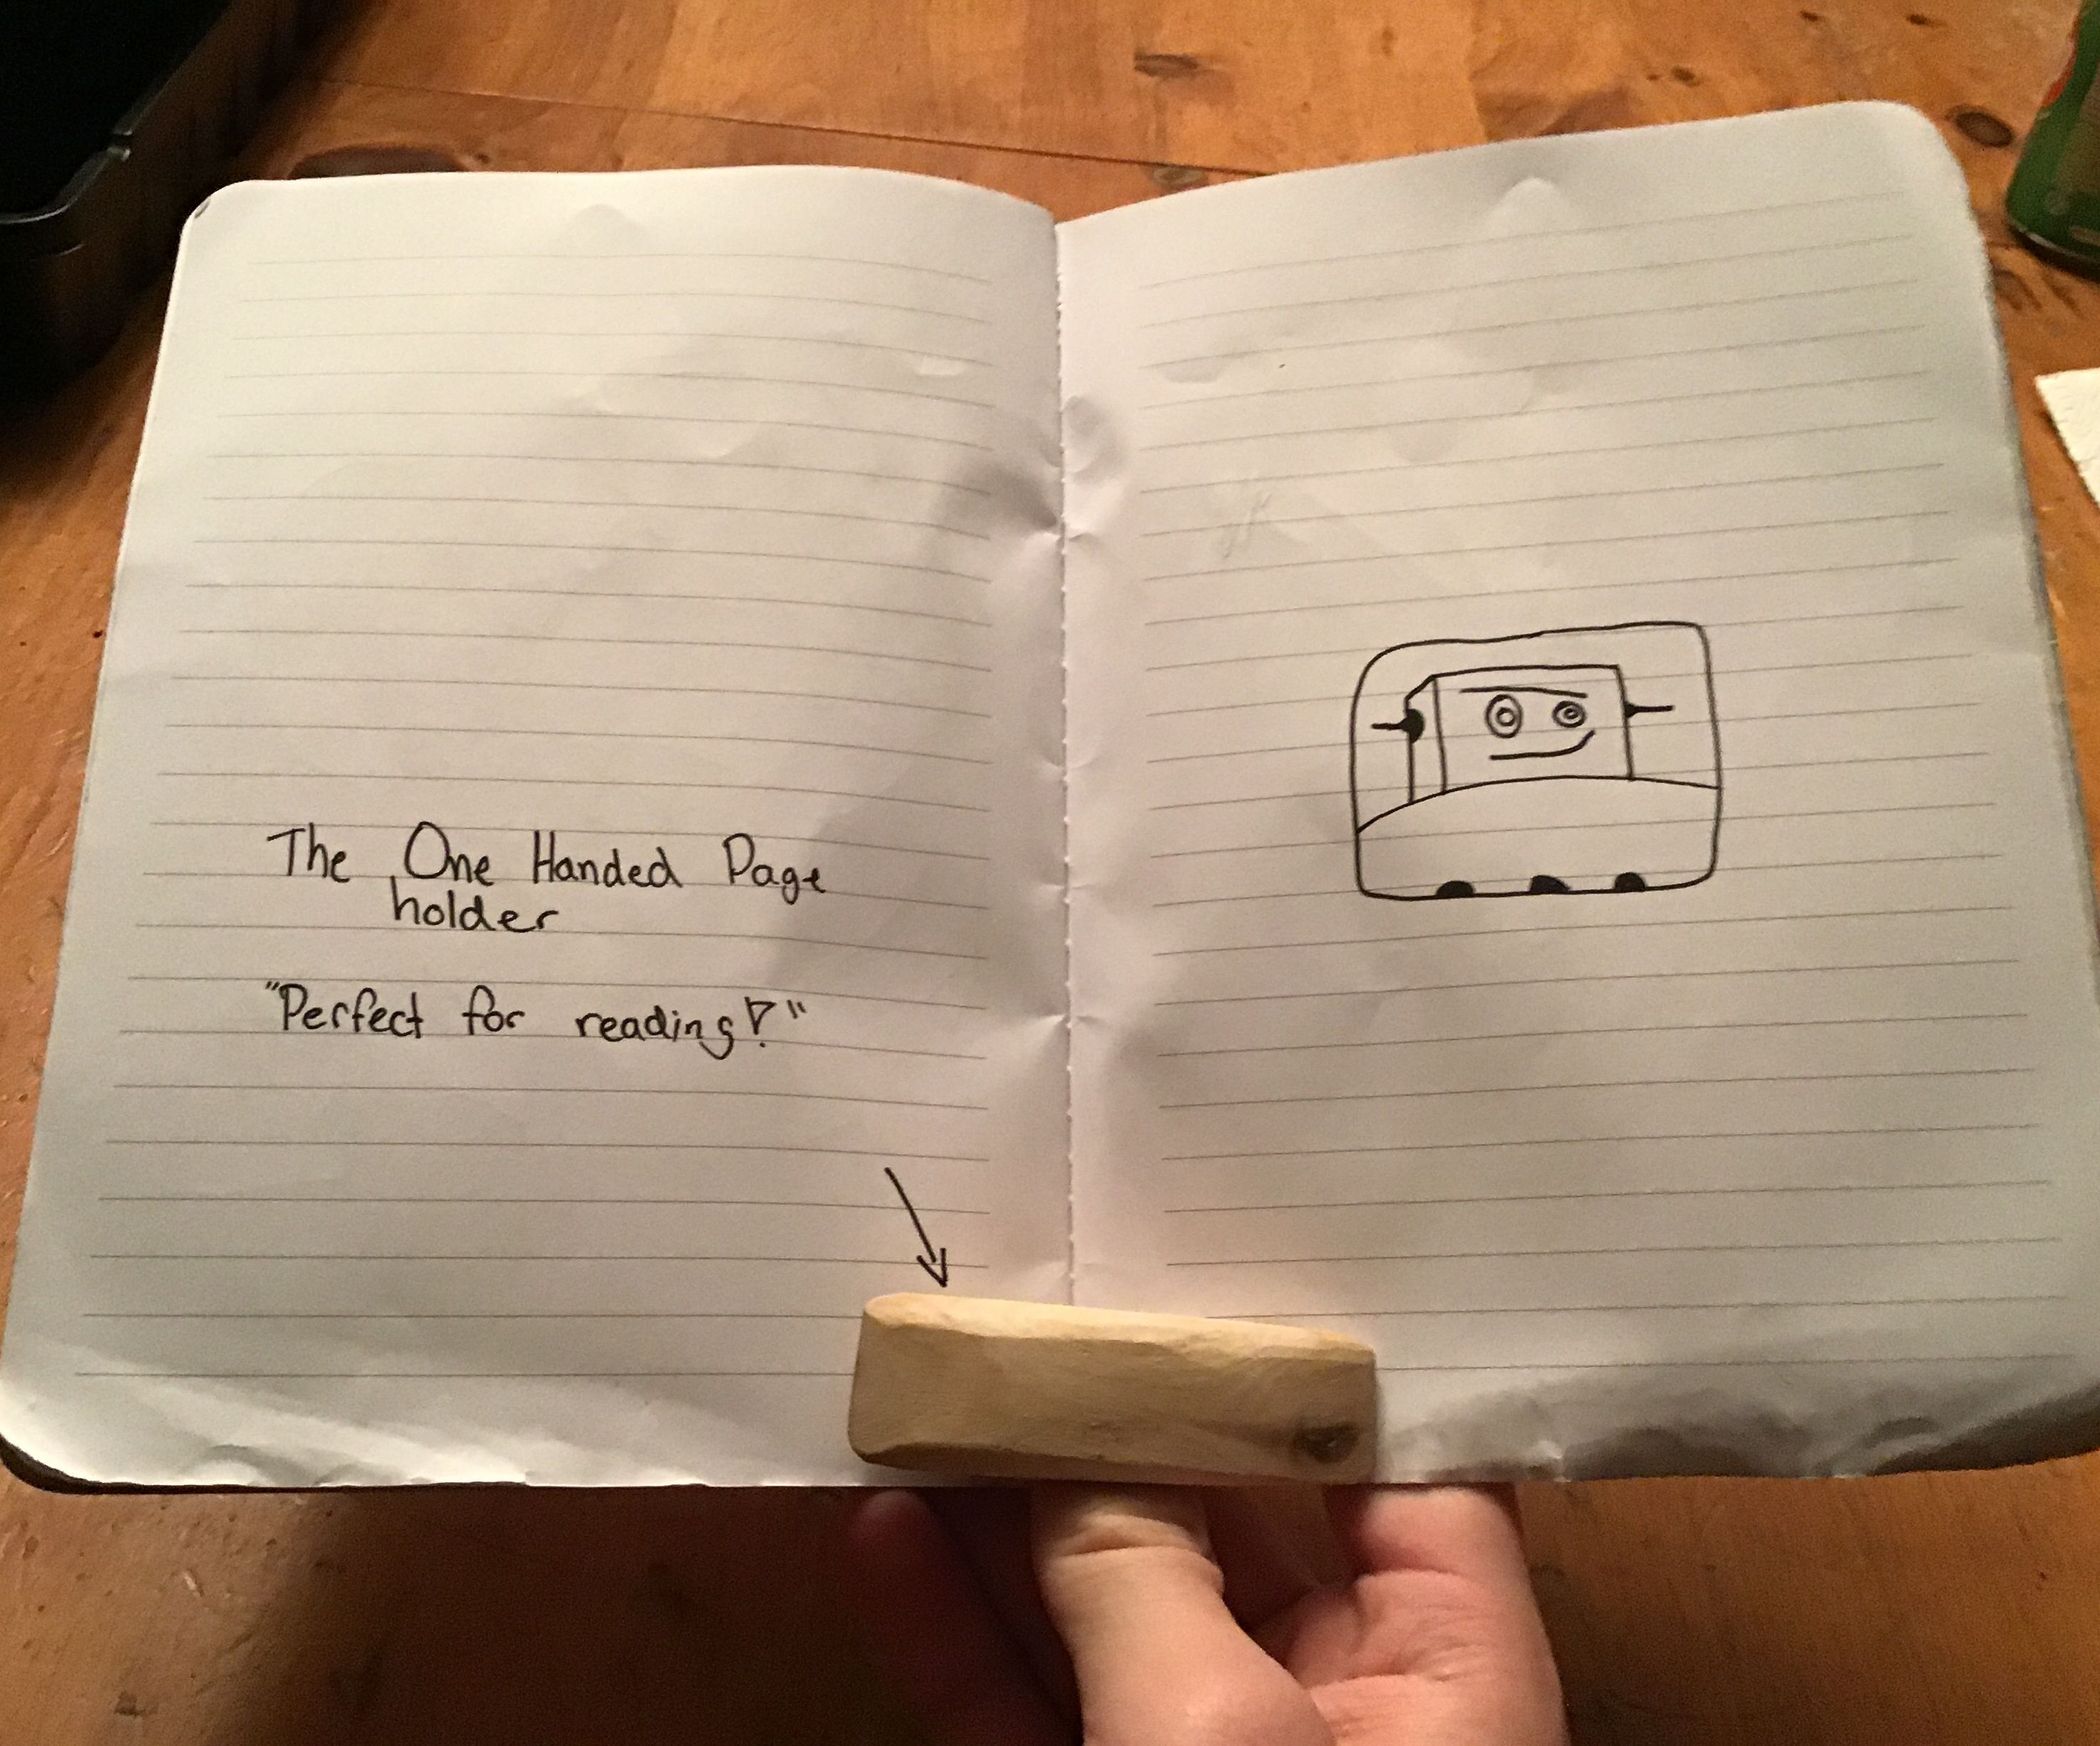 The One Handed Page
holder
"Perfect for reading!"